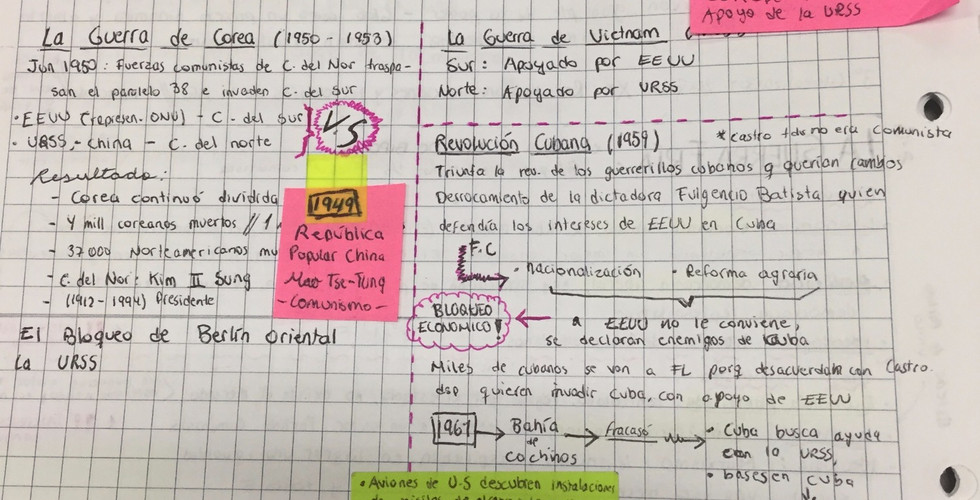 La Guerra de Corea (1950 - 1953)
Jun 1950: Fuerzas comunistas de C. del Nor traspa-
san el paralelo 38 e invaden C. del Sur
• EEUU (represen. ONU) - C. del Sur
• URSS - China - C. del norte
VS
Resultado:
- Corea continuó dividida
- 4 mill coreanos muertos // 1
- 37000 Norteamericanos mu
- C. del Nor: Kim II Sung
- (1912 - 1994) Presidente
1949
República
Popular China
Mao Tse-Tung
- Comunismo -
El Bloqueo de Berlín Oriental
La URSS
Apoyo de la URSS
La Guerra de Vietnam (
Sur: Apoyado por EEUU
Norte: Apoyado por URSS
Revolución Cubana (1959) *castro no era comunista
Triunfa la rev. de los guerrerillos cubanos q querían cambos
Derrocamiento de la dictadora Fulgencio Batista quien
defendía los intereses de EEUU en Cuba
F.C
• nacionalización • Reforma agraria
BLOQUEO
ECONOMICO!
a EEUU no le conviene,
se declaran enemigos de Cuba
Miles de cubanos se van a FL porq desacuerdan con Castro.
dsp quieren invadir Cuba, con apoyo de EEUU
1961 Bahía
de
cochinos
fracasó
• Cuba busca ayuda
con la URSS,
• bases en cuba
• Aviones de U.S descubren instalaciones